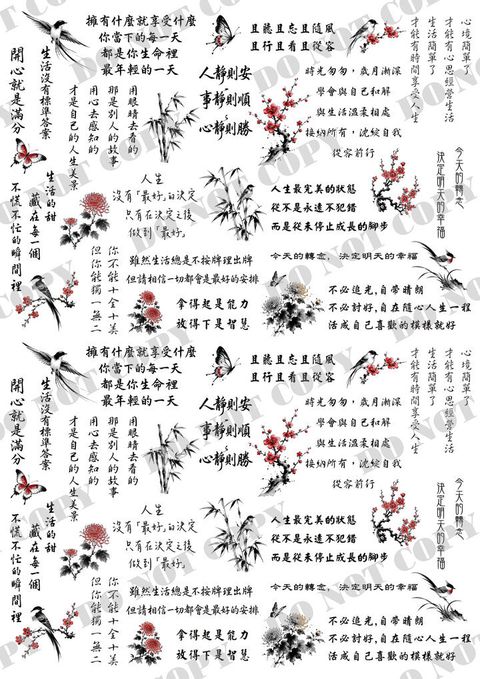 擁有什麼就享受什麼
你當下的每一天
都是你生命裡
最年輕的一天
且聽且忘且隨風
且行且看且從容
心境簡單了
才能有心思經營生活
生活簡單了
才能有時間享受人生
生活沒有標準答案
開心就是滿分
人靜則安
事靜則順
心靜則勝
時光匆匆，歲月漸深
學會與自己和解
與生活溫柔相處
接納所有，沈綻自我
從容前行
用眼睛去看的
那是別人的故事
用心去感知的
才是自己的人生美景
今天的轉念
決定明天的幸福
生活的甜
藏在每一個
不慌不忙的瞬間裡
人生
沒有「最好」的決定
只有在決定之後
做到「最好」
人生最完美的狀態
從不是永遠不犯錯
而是從未停止成長的腳步
你不能十全十美
但你能獨一無二
雖然生活總是不按牌理出牌
但請相信一切都會是最好的安排
今天的轉念，決定明天的幸福
拿得起是能力
放得下是智慧
不必追光，自帶晴朗
不必討好，自在隨心人生一程
活成自己喜歡的模樣就好
擁有什麼就享受什麼
你當下的每一天
都是你生命裡
最年輕的一天
且聽且忘且隨風
且行且看且從容
心境簡單了
才能有心思經營生活
生活簡單了
才能有時間享受人生
生活沒有標準答案
開心就是滿分
人靜則安
事靜則順
心靜則勝
時光匆匆，歲月漸深
學會與自己和解
與生活溫柔相處
接納所有，沈綻自我
從容前行
用眼睛去看的
那是別人的故事
用心去感知的
才是自己的人生美景
今天的轉念
決定明天的幸福
生活的甜
藏在每一個
不慌不忙的瞬間裡
人生
沒有「最好」的決定
只有在決定之後
做到「最好」
人生最完美的狀態
從不是永遠不犯錯
而是從未停止成長的腳步
你不能十全十美
但你能獨一無二
雖然生活總是不按牌理出牌
但請相信一切都會是最好的安排
今天的轉念，決定明天的幸福
拿得起是能力
放得下是智慧
不必追光，自帶晴朗
不必討好，自在隨心人生一程
活成自己喜歡的模樣就好
DO NOT COPY